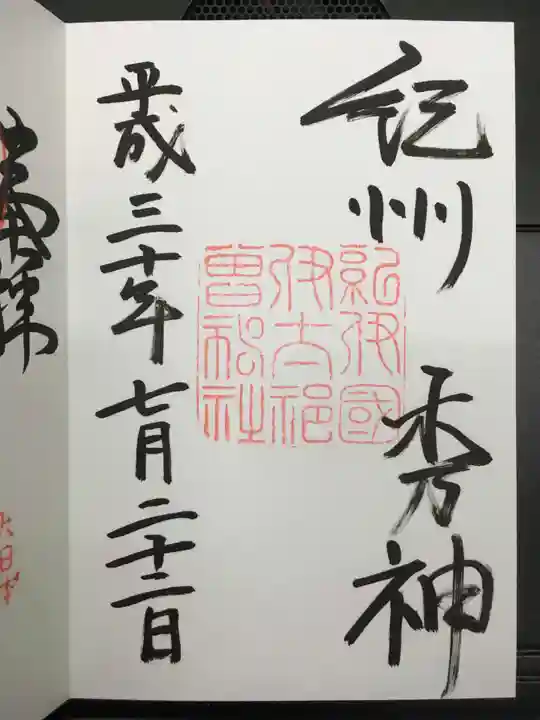 紀州 秀神
紀伊國
伊太祁
曾神社
平成三十年七月二十二日